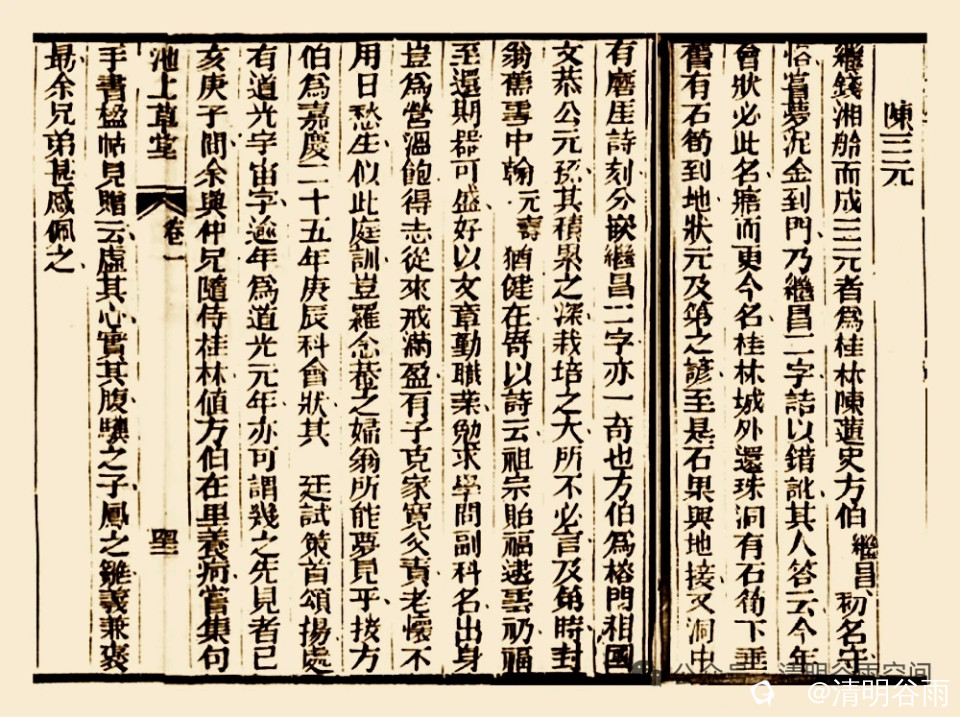 陳三元
繼錢湘舲而成三元者爲桂林陳蓮史方伯繼昌初名守
嘗夢泥金到門乃繼昌二字詰以錯訛其人答云今年
會狀必此名寤而更今名桂林城外還珠洞有石筍下垂
舊有石筍到地狀元及第之諺至是石果與地接又洞中
有磨厓詩刻分嵌繼昌二字亦一奇也方伯爲榕門相國
文恭公元孫其積累之深栽培之大所不必言及第時封
翁舊雲中翰元燾猶健在寄以詩云祖宗貽福逮雲礽福
至還期器可盛好以文章勤職業勉求學問副科名出身
豈爲營溫飽得志從來戒滿盈有子克家寬父責老懷不
用日愁生似此庭訓豈羅念菴之婦翁所能夢見乎按方
伯爲嘉慶二十五年庚辰科會狀其 廷試策首頌揚處
有道光宇宙字逾年爲道光元年亦可謂幾之先見者己
亥庚子間余與仲兄隨侍桂林値方伯在里養疴嘗集句
池上草堂 卷一
手書楹帖見贈云虛其心實其腹驥之子鳳之雛義兼褒
勗余兄弟甚感佩之
公众号 清明谷雨空间
@清明谷雨